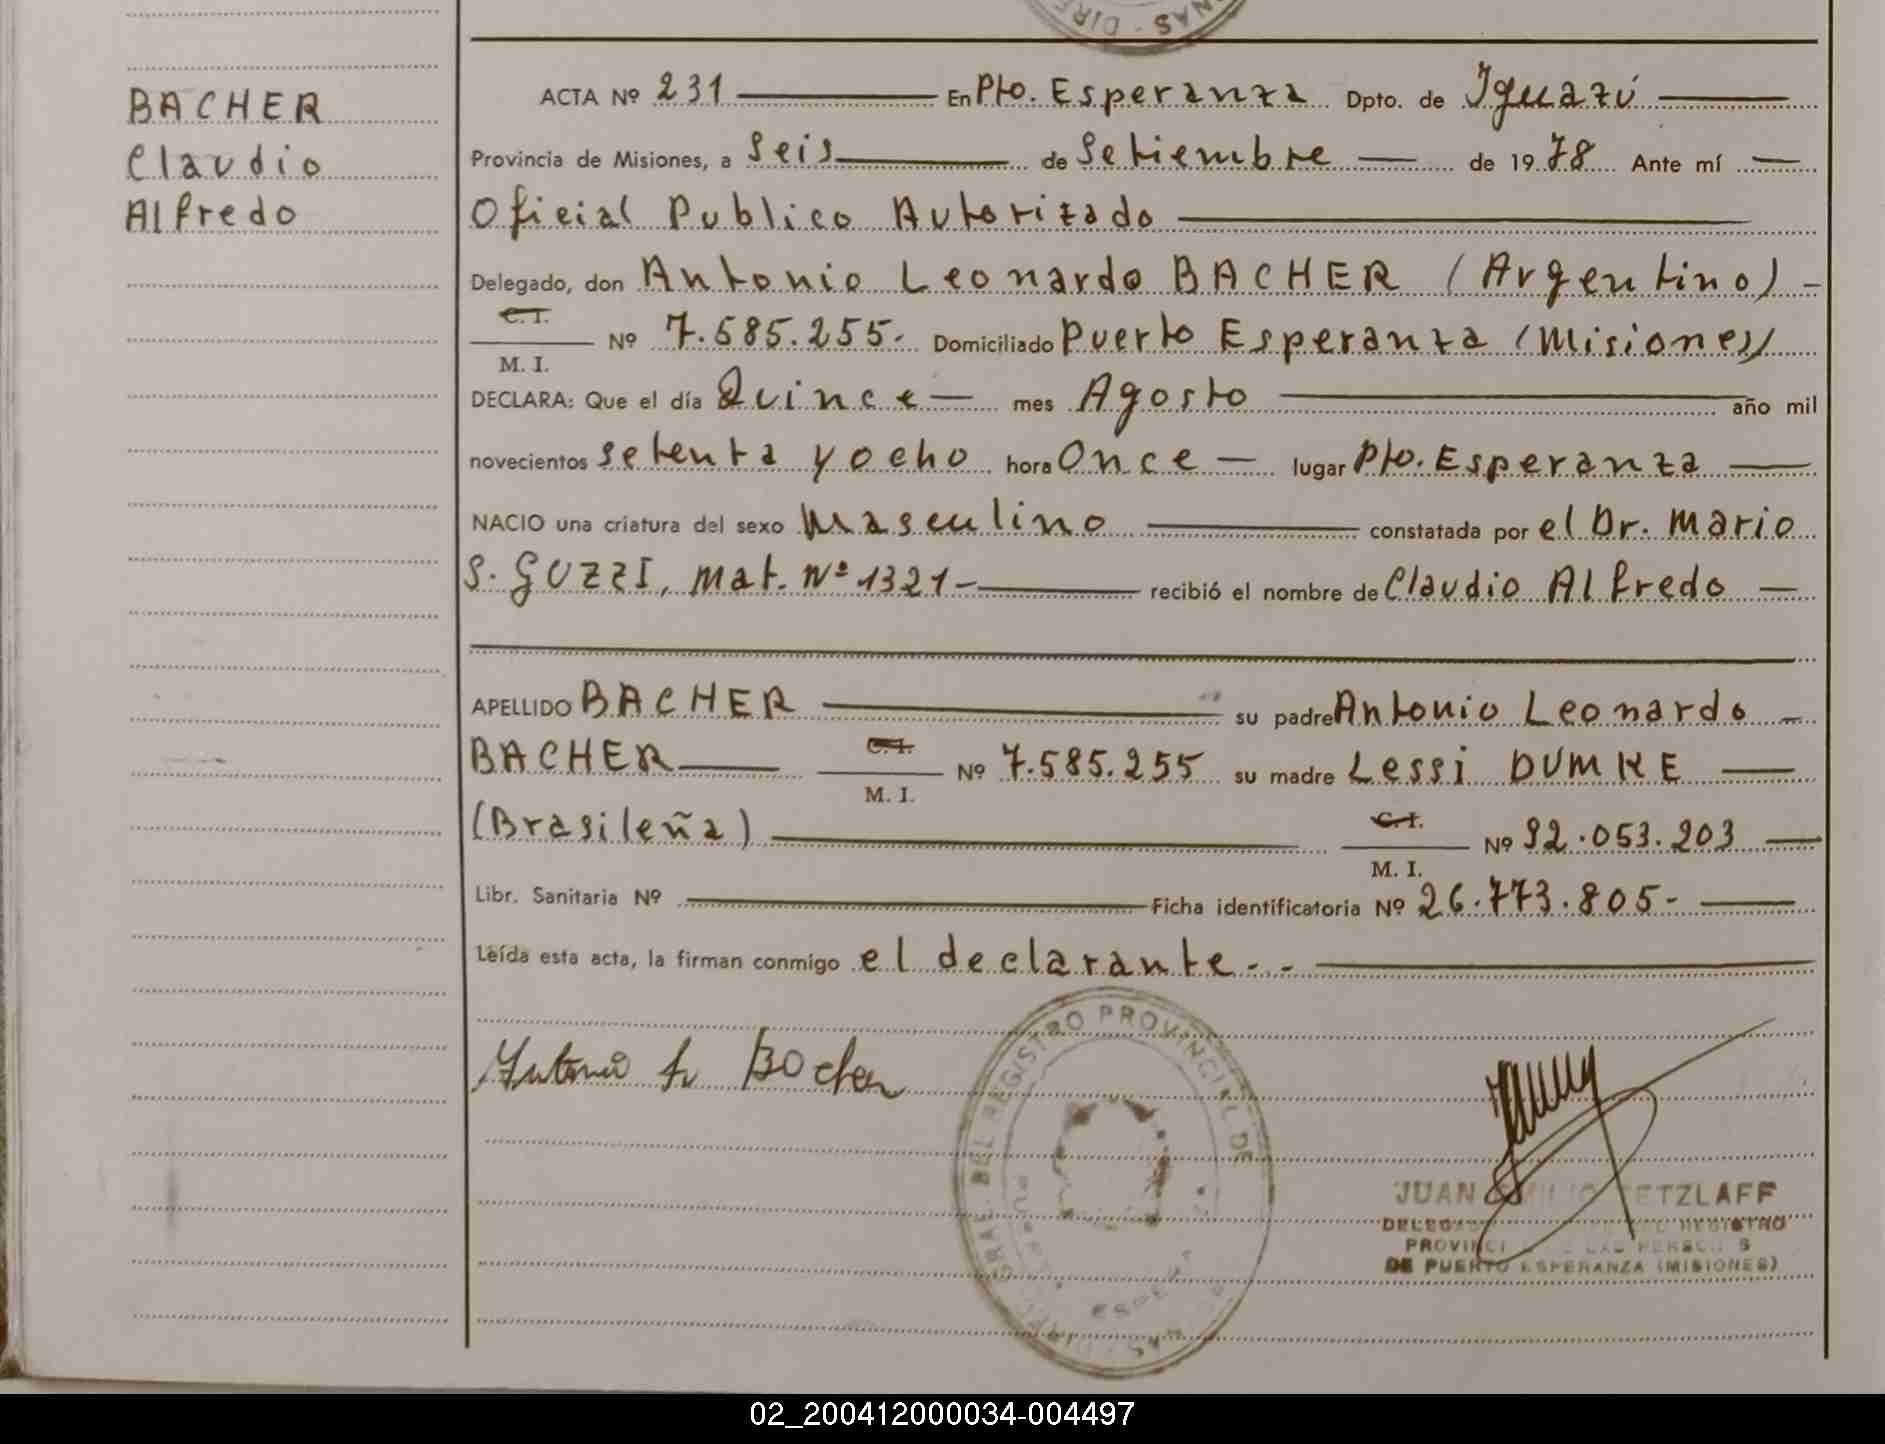 NAS - DIRE
BACHER
Claudio
Alfredo
ACTA Nº 231 En Pto. Esperanza Dpto. de Iguazú
Provincia de Misiones, a seis de Setiembre de 1978 Ante mí
Oficial Publico Autorizado
Delegado, don Antonio Leonardo BACHER (Argentino) -
C. I.
M. I. Nº 7.585.255.- Domiciliado Puerto Esperanza (Misiones)
DECLARA: Que el día Quince mes Agosto año mil
novecientos setenta y ocho hora Once lugar Pto. Esperanza
NACIO una criatura del sexo Masculino constatada por el Dr. Mario
S. GUZZI, Mat. Nº 1321- recibió el nombre de Claudio Alfredo
APELLIDO BACHER su padre Antonio Leonardo
BACHER C. I. M. I. Nº 7.585.255 su madre Lessi DUMKE
(Brasileña) C. I. M. I. Nº 92.053.203
Libr. Sanitaria Nº Ficha identificatoria Nº 26.773.805-
Leída esta acta, la firman conmigo el declarante.-
Antonio L Bacher
GRAL. DEL REGISTRO PROVINCIAL DE
JUAN EMILIO TETZLAFF
REGISTRO
DE PUERTO ESPERANZA (MISIONES)
02_200412000034-004497